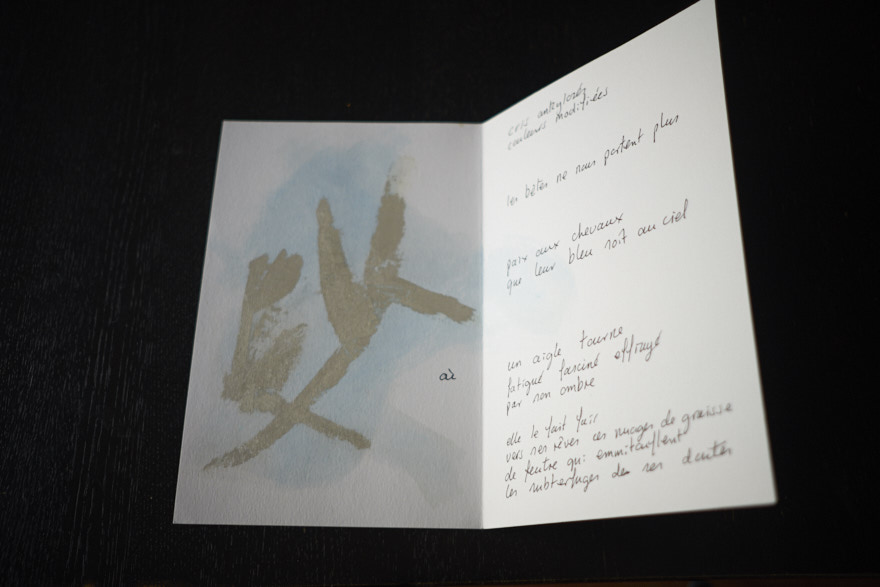 où
ankylosés
couleurs modifiées
les bêtes ne nous portent plus
paix aux chevaux
que leur bleu soit au ciel
un aigle tourne
fatigué fasciné effrayé
par son ombre
elle le fait fuir
vers ses rêves ces nuages de graisse
de feutre qui emmitouflent
les subterfuges de ses doutes